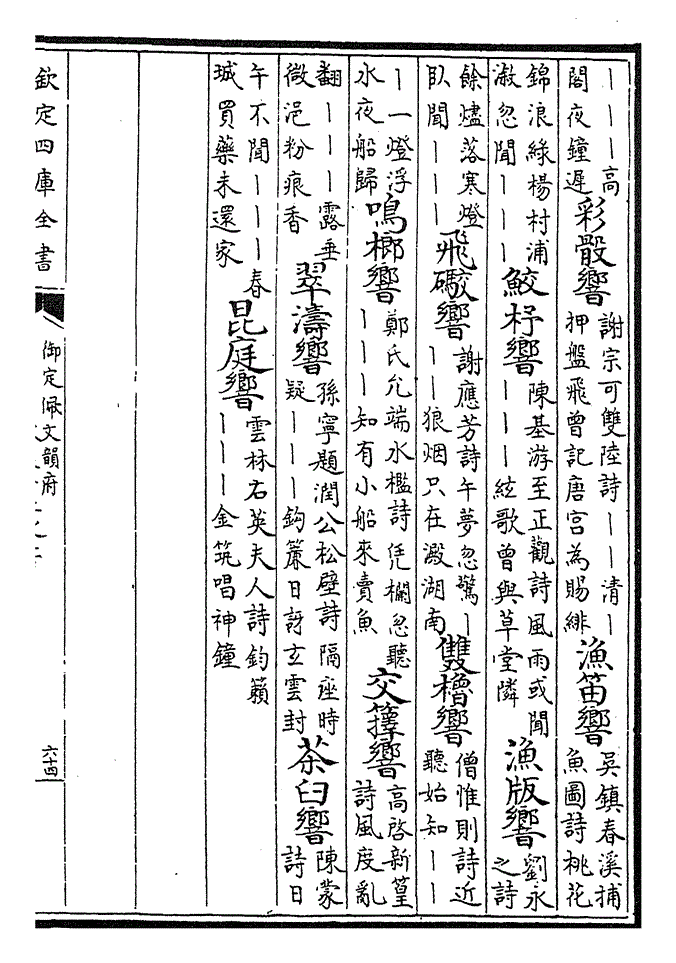 ｜｜｜高閣夜鐘遲 彩骰響 謝宗可雙陸詩｜｜清｜押盤飛曾記唐宮為賜緋 漁笛響 吳鎮春溪捕魚圖詩桃花
錦浪綠楊村浦溆忽聞｜｜｜ 鮫杼響 陳基游至正觀詩風雨或聞｜｜｜絃歌曾與草堂隣 漁版響 劉永之詩
餘燼落寒燈臥聞｜｜｜ 飛礮響 謝應芳詩午夢忽驚｜｜｜狼烟只在澱湖南 雙櫓響 僧惟則詩近聽始知｜｜
｜一燈浮水夜船歸 鳴榔響 鄭氏允端水檻詩凭欄忽聽｜｜｜知有小船來賣魚 交籜響 高啓新篁詩風度亂
翻｜｜｜露垂微浥粉痕香 翠濤響 孫寧題潤公松壁詩隔座時疑｜｜｜鈎簾日訝玄雲封 茶臼響 陳蒙詩日
午不聞｜｜｜春城買藥未還家 昆庭響 雲林右英夫人詩鈞籟｜｜｜金筑唱神鐘
欽定四庫全書
御定佩文韻府
六十四